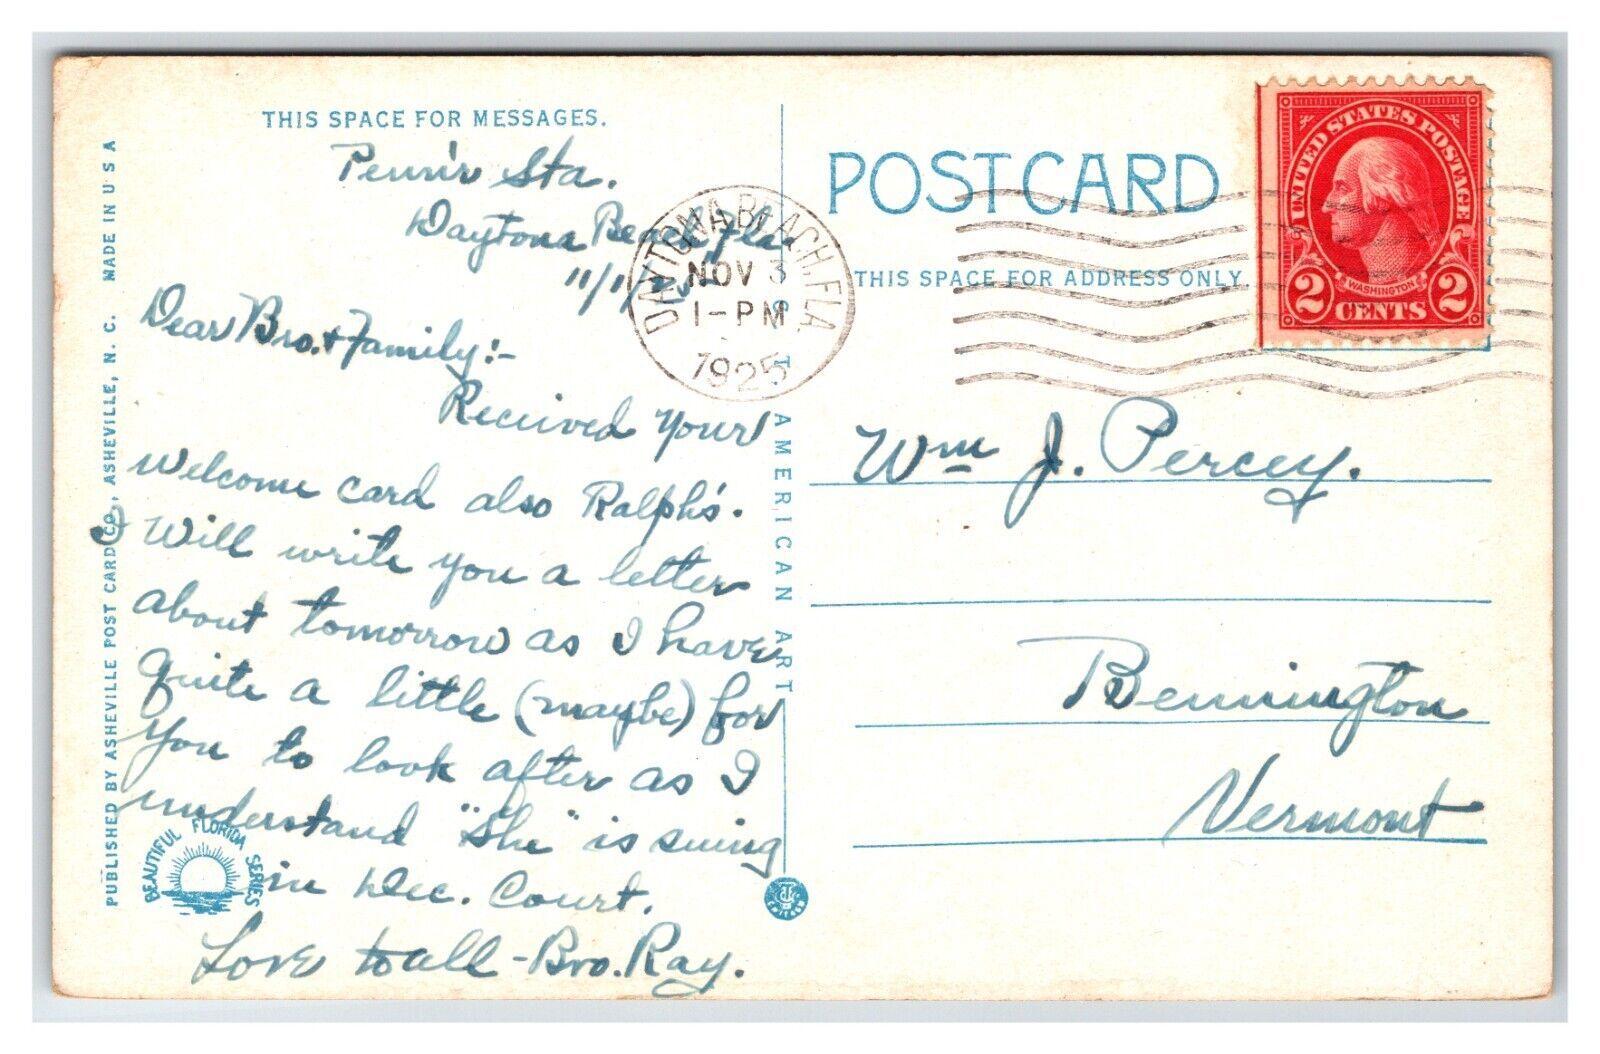 THIS SPACE FOR MESSAGES.
Penin'r Sta.
Daytona Beach, Fla.
11/1/25
Dear Bro. & Family:-
Received your
welcome card also Ralph's.
I will write you a letter
about tomorrow as I have
quite a little (maybe) for
you to look after as I
understand "She" is suing
in Dec. Court.
Love to all - Bro. Ray.
PUBLISHED BY ASHEVILLE POST CARD CO., ASHEVILLE, N. C. MADE IN U S A
BEAUTIFUL FLORIDA SERIES
AMERICAN ART
POST CARD
THIS SPACE FOR ADDRESS ONLY.
DAYTONA BEACH, FLA.
NOV 3
1-PM
1925
UNITED STATES POSTAGE
WASHINGTON
2 CENTS 2
Wm J. Percey.
Bennington
Vermont